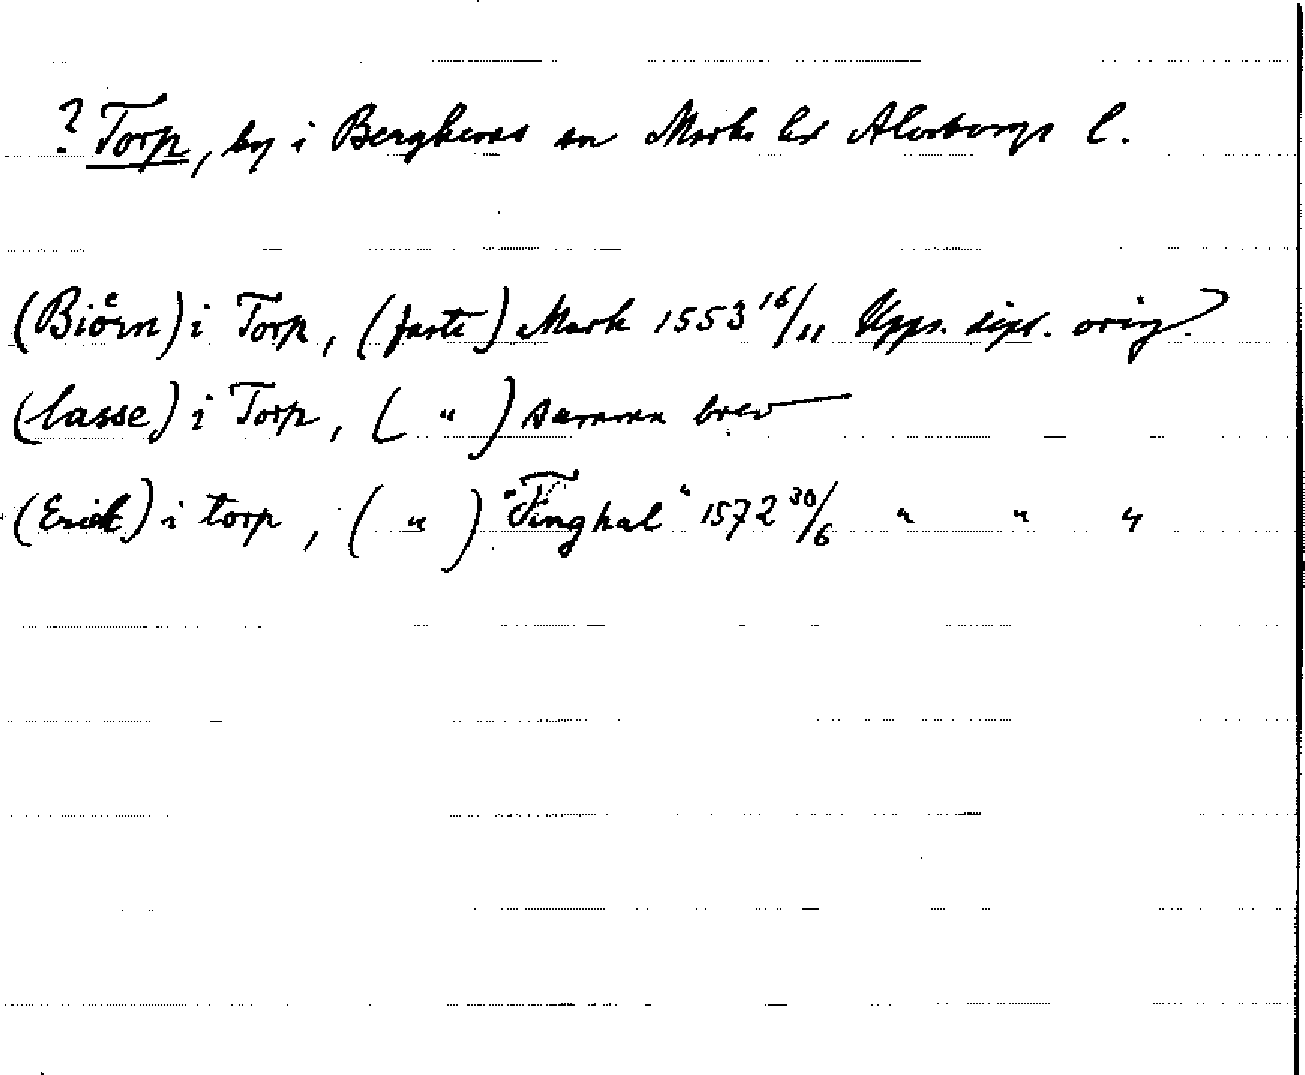 ? Torp, by i Berghems sn Marks hd Älvsborgs l.
(Biörn) i Torp, (faste) Mark 1553 16/11 Upps. dipl. orig.
(lasse) i Torp, ( " ) samma brev
(Erick) i torp, ( " ) "Tinghal" 1572 30/6 " " "